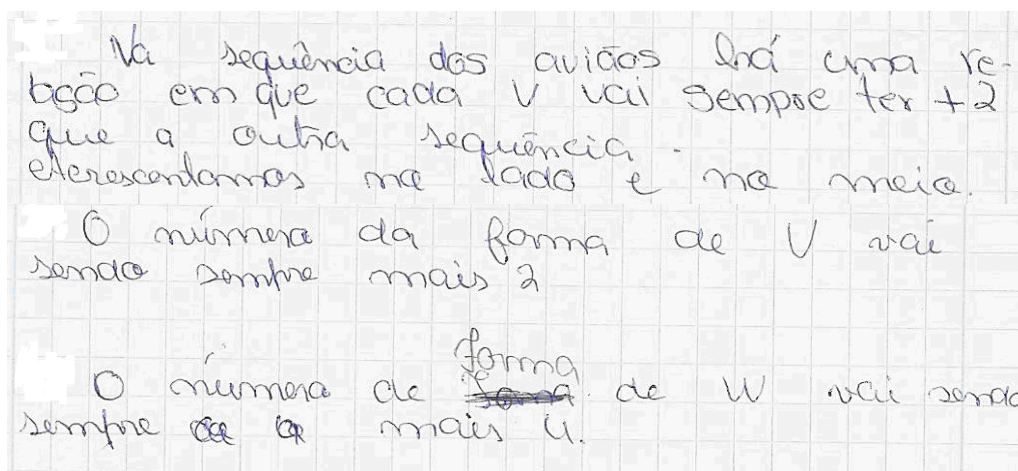 Na sequência dos aviãos há uma re-
lação em que cada V vai sempre ter +2
que a outra sequência.
Acrescentamos no lado e no meio.
O número da forma de V vai
sendo sempre mais 2
O número de forma de W vai sendo
sempre mais 4.